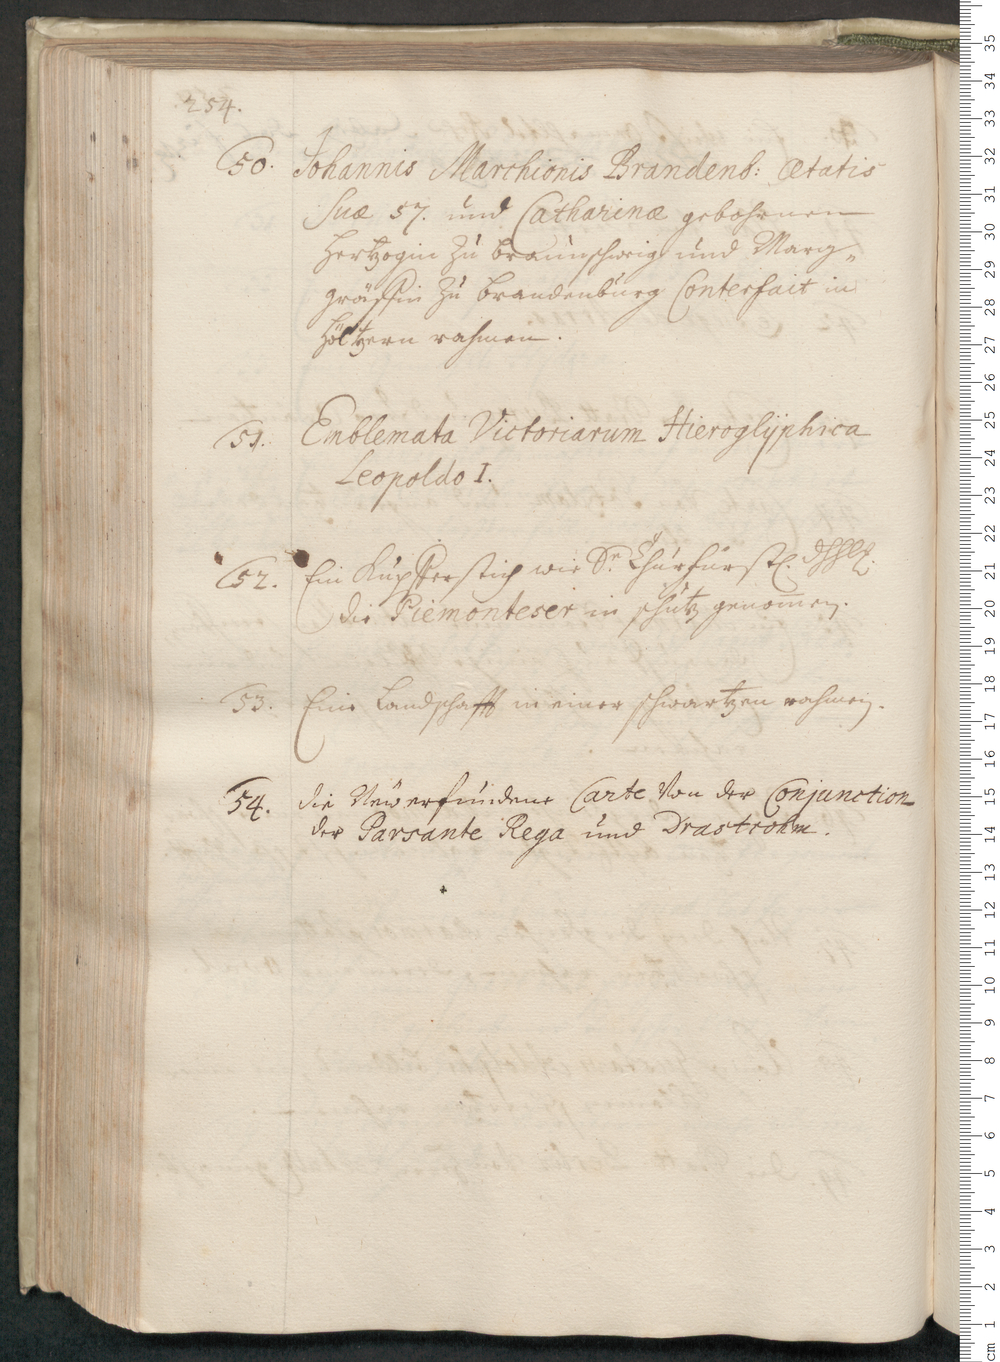 254.
50. Johannis Marchionis Brandenb: Ætatis
Suæ 57. und Catharinæ gebohrnen
Hertzogin zu Braunschweig und Marg-
gräffin zu Brandenburg Conterfait in
höltzern rahmen.
51. Emblemata Victoriarum Hieroglÿphica
Leopoldo I.
52. Ein Kupfferstich wie Sr. Churfürstl.
die Piemonteser in schutz genom̅en.
53. Eine Landschafft in einer schwartzen rahmen.
54. die Neü erfundene Carte Von der Conjunction
der Parsante Rega und Drastrohm.
cm 1 2 3 4 5 6 7 8 9 10 11 12 13 14 15 16 17 18 19 20 21 22 23 24 25 26 27 28 29 30 31 32 33 34 35